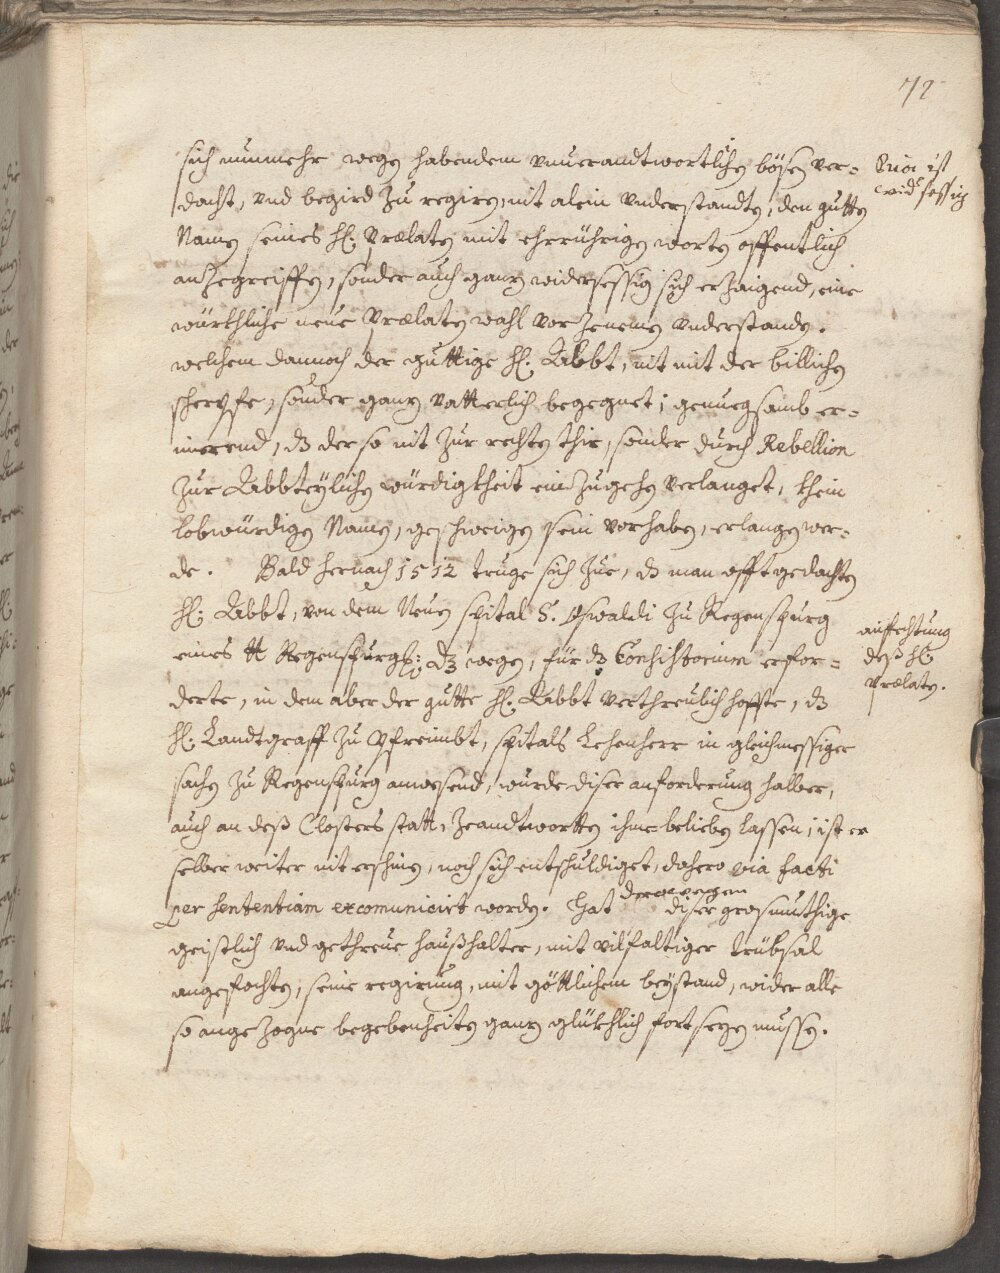 72
sich nunmehr wegen habendem vnuerandtwortlichen bösen ver-
dacht, vnd begird zu regiren, nit alein vnderstandten, den gutten
Namen seines H: Prælaten mit ehrrührigen worten offentlich
anzegreiffen, sonder auch ganz widersessig sich erzaigend, eine
würkhliche neue Prælaten wahl vor zenemen vnderstanden.
welchem dannoch der guttige H: Abbt, nit mit der billichen
scherpfe, sonder ganz vatterlich begegnet; genuegsamb er-
inerend, dz der so nit zur rechten thir, sonder durch Rebellion
zur Abbteylichen würdigkheit einzugehen verlanget, khein
lobwürdigen Namen, geschweigen sein vorhaben, erlangen wer-
de. Bald hernach 1512 truge sich zue, dz man offtgedachten
H: Abbt, von dem Neuen spital S. Oswaldi zu Regenspurg
eines tt Regenspurg: dz wegen, für dz Consistorium erfor-
derte, in dem aber der gutte H: Abbt vertheulich hoffte, dz
H: Landtgraff zu Pfreimbt, spitals Lehenherr in gleichmessiger
sachen zu Regenspurg anwesend, wurde diser anforderung halber,
auch an deß Closters statt, zeandtwortten ihme belieben lassen, ist er
selber weiter nit erschinen, noch sich entschuldiget, dahero via facti
per sententiam excomunicirt worden. Hat derowegen diser grosmuthige
geistlich vnd getreue haußhalter, mit vilfaltiger trübsal
angefochten, seine regirung, mit göttlichem beystand, wider alle
so angezogne begebenheiten ganz glükhlich fortsezen mussen.
ist
widersessig
anfechtung
deß H:
Prælaten.